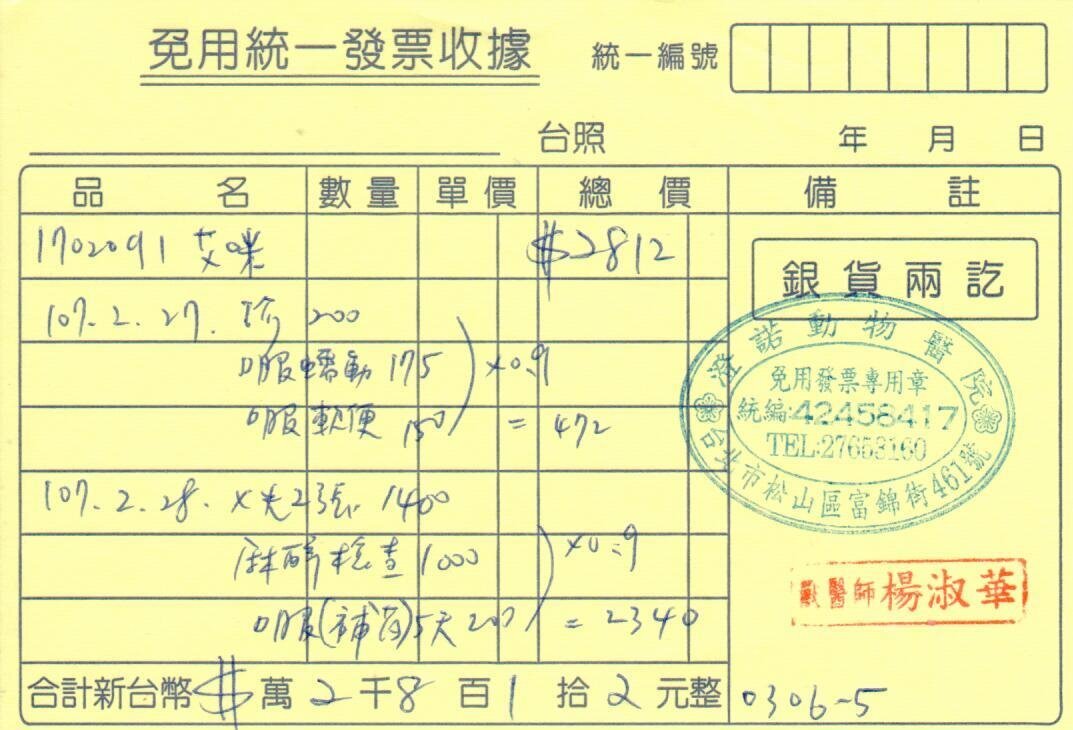 免用統一發票收據
統一編號
台照 年 月 日
品名 數量 單價 總價 備註
1702091 艾咪 $2812
107.2.27. 診 200
口服蠕動 175
口服軟便 150
×0.9
= 472
107.2.28. X光2張 1400
麻醉檢查 1000
口服(補筋)5天 200
×0.9
= 2340
合計新台幣 $ 萬 2 千 8 百 1 拾 2 元整
銀貨兩訖
澄諾動物醫院
免用發票專用章
統編:42458417
TEL:27653160
台北市松山區富錦街461號
獸醫師 楊淑華
0306-5